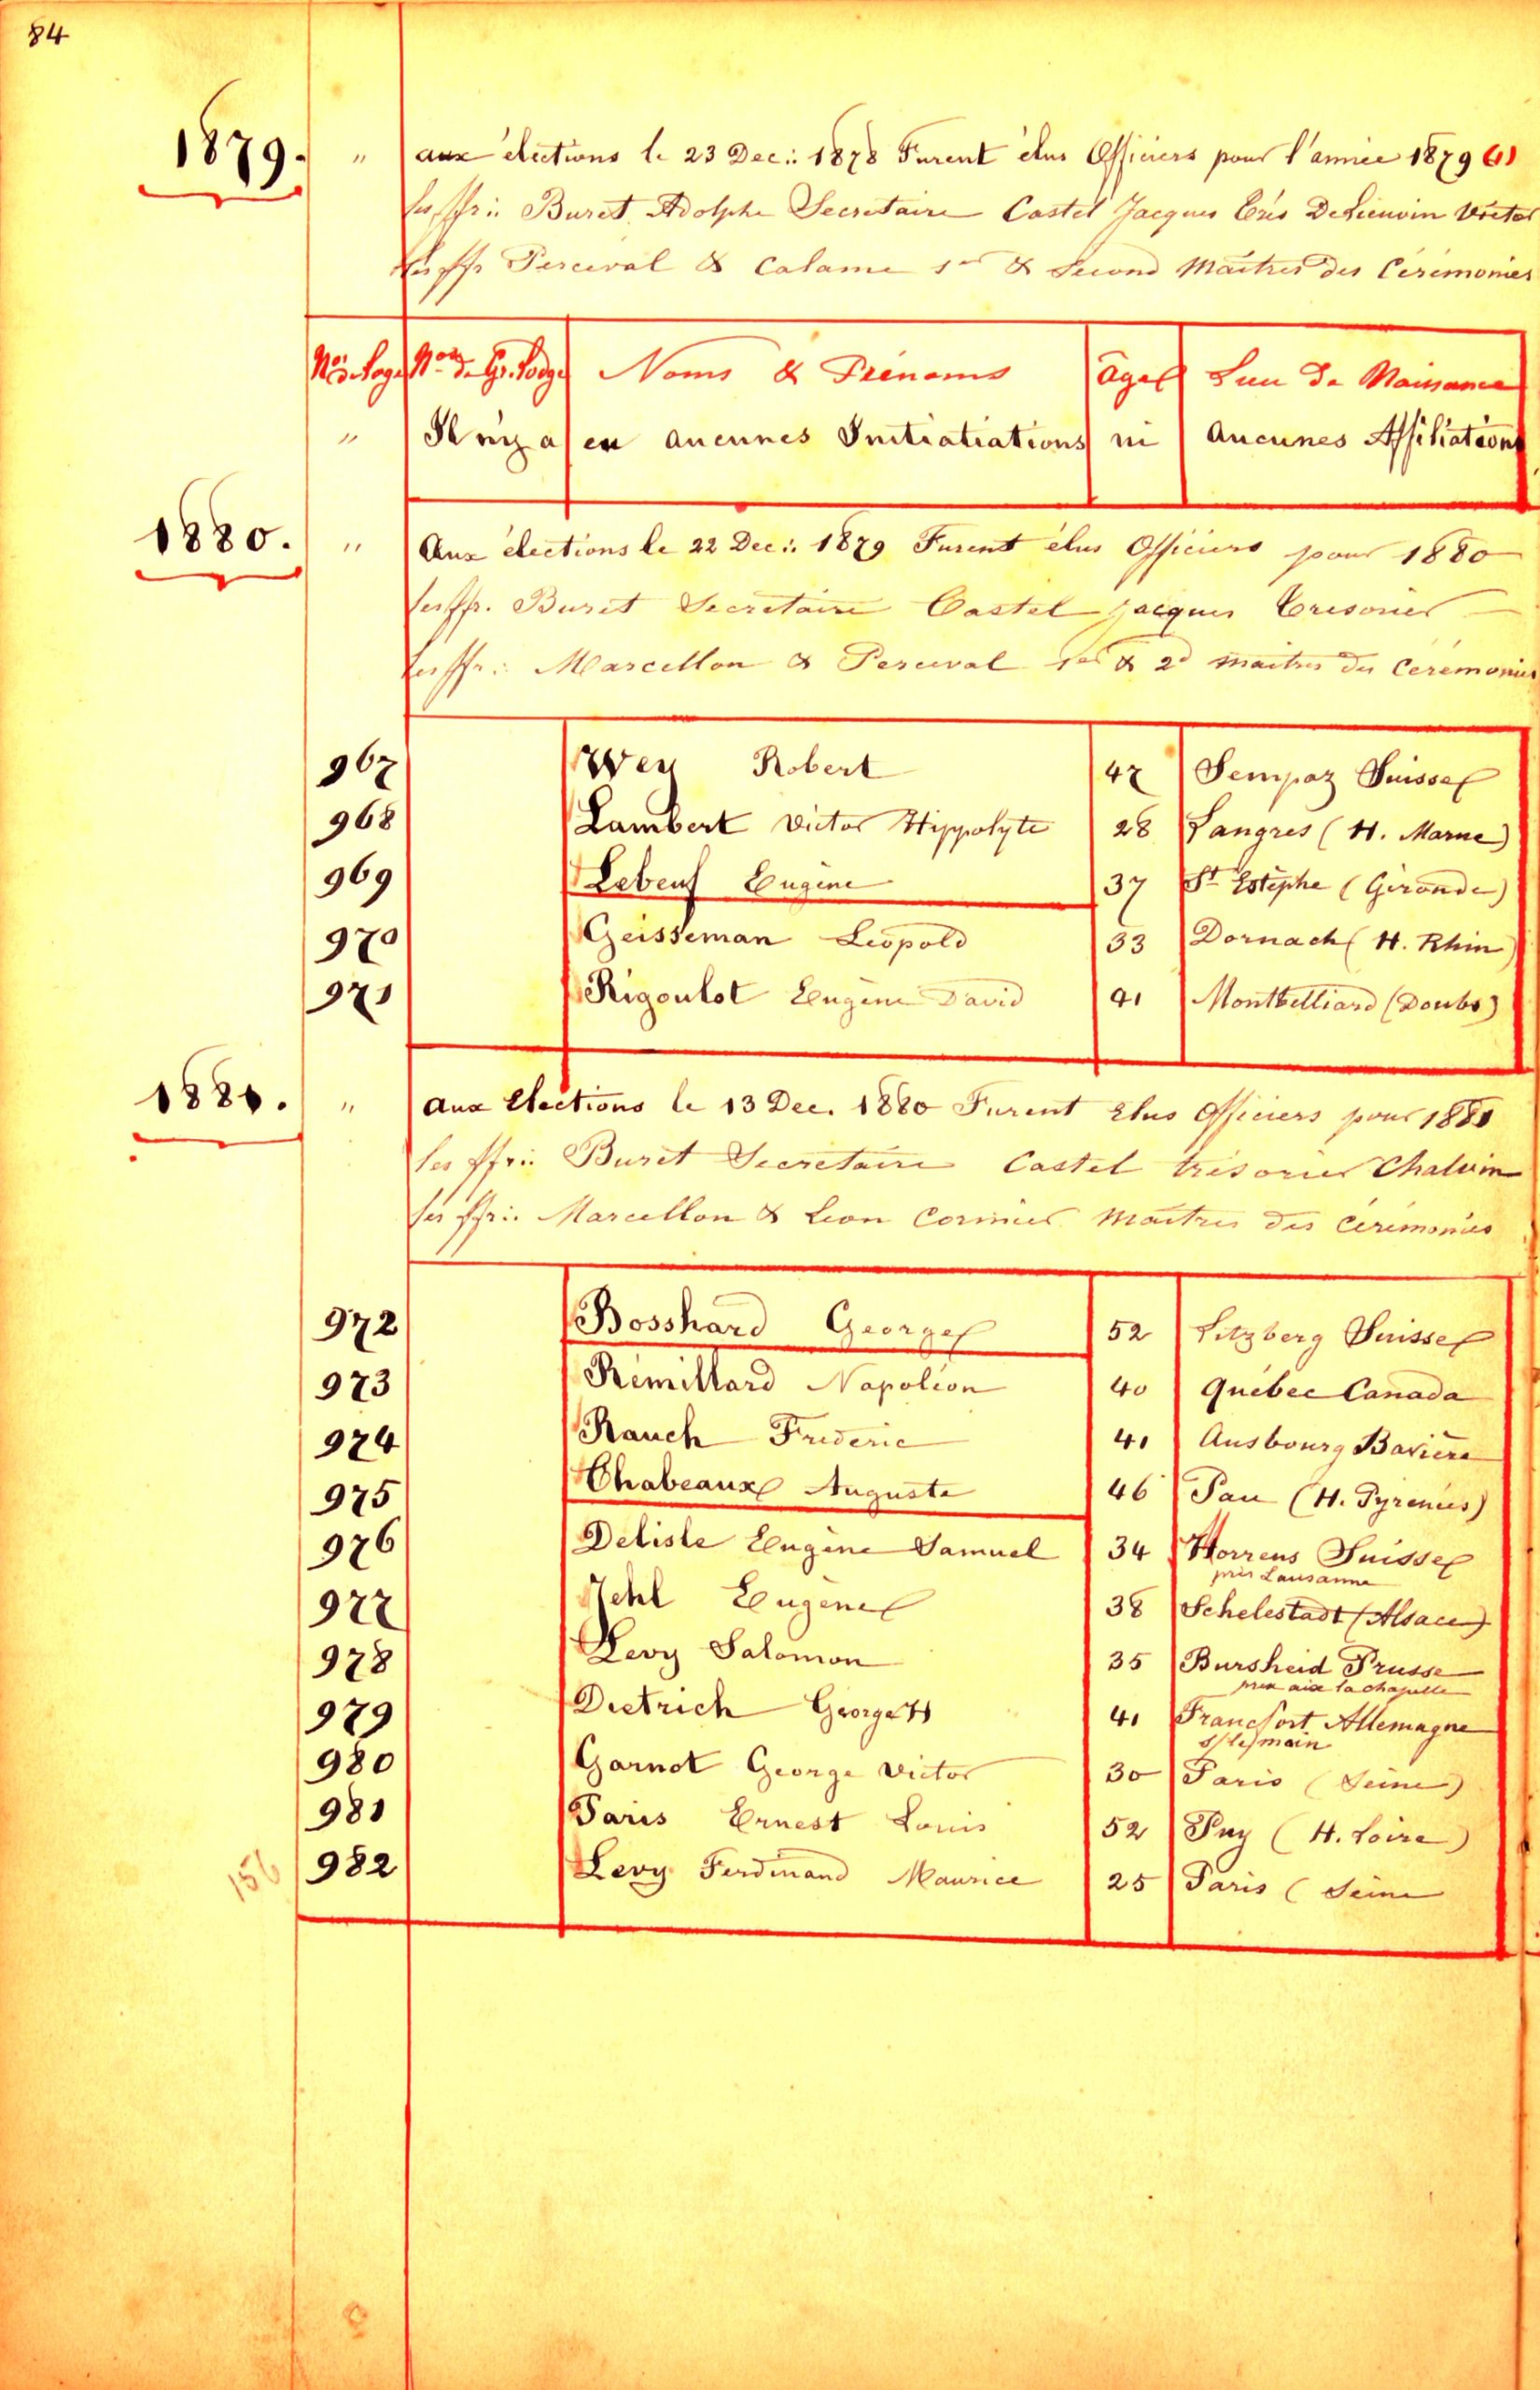 84
1879. " aux élections le 23 Dec:. 1878 Furent élus Officiers pour l'année 1879 (1)
les ffr:. Buret Adolphe Secretaire Castel Jacques Trés Victor
les ffr Perceval & Calame 1er & Second Maitres des Cérémonies
Nos Loge Nos de Gr. Lodge Noms & Prénoms âges Lieu de Naissance
" Il n'y a eu aucunes Initiatiations ni Aucunes Affiliations
1880. " Aux élections le 22 Dec:. 1879 Furent élus Officiers pour 1880
les ffr. Buret Secretaire Castel Jacques Tresorier
les ffr:. Marcellon & Perceval 1er & 2d maitres des Cérémonies
967 Wey Robert 47 Sempaz Suisse
968 Lambert Victor Hippolyte 28 Langres (H. Marne)
969 Lebeuf Eugène 37 St Estèphe (Gironde)
970 Geisseman Léopold 33 Dornach (H. Rhin)
971 Rigoulot Eugène David 41 Montbelliard (Doubs)
1881. " aux Elections le 13 Dec. 1880 Furent Elus Officiers pour 1881
les ffr:. Buret Secretaire Castel trésorier Chalvin
les ffr:. Marcellon & Leon Cormier Maitres des cérémonies
972 Bosshard George 52 Suisse
973 Rémillard Napoléon 40 Québec Canada
974 Rauch Fréderic 41 Ausbourg Bavière
975 Chabeaux Auguste 46 Pau (H. Pyrenées)
976 Delisle Eugène Samuel 34 Horrens Suisse
près Lausanne
977 Jehl Eugène 38 Schelestadt (Alsace)
978 Levy Salomon 35 Bursheid Prusse
près aix la chapelle
979 Dietrich George H 41 Francfort Allemagne
s/le/main
980 Garnot George Victor 30 Paris (Seine)
981 Paris Ernest Louis 52 Puy (H. Loire)
156 982 Levy Ferdinand Maurice 25 Paris (Seine